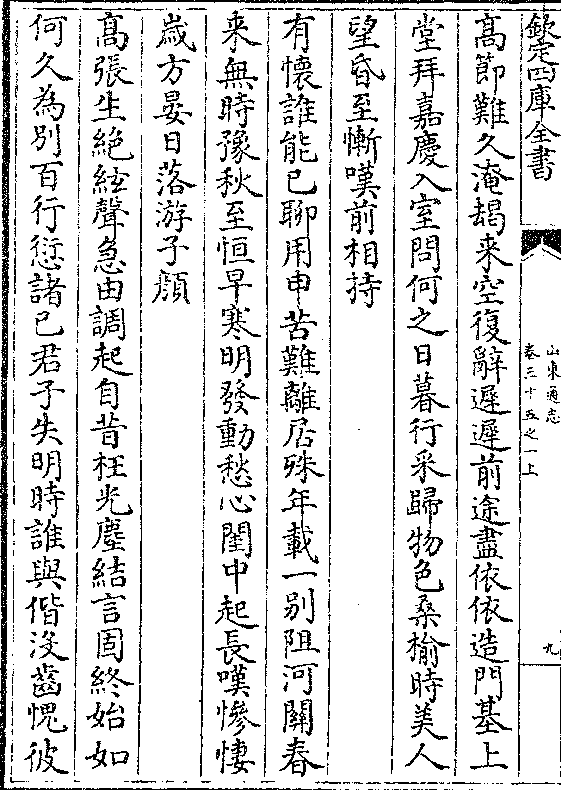 欽定四庫全書
山東通志
卷三十五之一上
九
高節難久淹朅来空復辭遲遲前途盡依依造門基上
堂拜嘉慶入室問何之日暮行采歸物色桑榆時美人
望昏至慚嘆前相持
有懷誰能已聊用申苦難離居殊年載一别阻河關春
来無時豫秋至恒早寒明發動愁心閨中起長嘆慘悽
嵗方晏日落游子顔
髙張生絶絃聲急由調起自昔枉光塵結言固終始如
何久為别百行愆諸已君子失明時誰與偕没齒愧彼